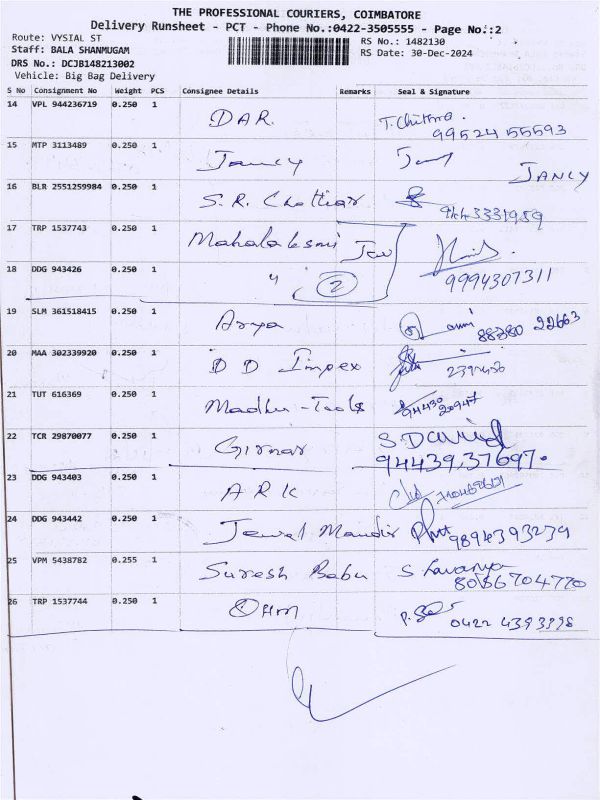 THE PROFESSIONAL COURIERS, COIMBATORE
Delivery Runsheet - PCT - Phone No.:0422-3505555 - Page No.:2
Route: VYSIAL ST
RS No.: 1482130
Staff: BALA SHANMUGAM
RS Date: 30-Dec-2024
DRS No.: DCJB148213002
Vehicle: Big Bag Delivery
S No Consignment No Weight PCS Consignee Details Remarks Seal & Signature
14 VPL 944236719 0.250 1 DAR. T. Chithra.
99524 55593
15 MTP 3113489 0.250 1 Jancy JANCY
16 BLR 2551259984 0.250 1 S. R. Chettiar
17 TRP 1537743 0.250 1 Mahalakshmi
18 DDG 943426 0.250 1 " 2 9994307311
19 SLM 361518415 0.250 1 Arya 88380 22663
20 MAA 302339920 0.250 1 D D Impex
21 TUT 616369 0.250 1 Madhu-Tools 94430 20947
22 TCR 29870077 0.250 1 Girnar S. David
94439,37697.
23 DDG 943403 0.250 1 ARK
24 DDG 943442 0.250 1 Jewel Mandir 9894393239
25 VPM 5438782 0.255 1 Suresh Babu S Lavanya
8086704770
26 TRP 1537744 0.250 1 OHM 0422 4393398